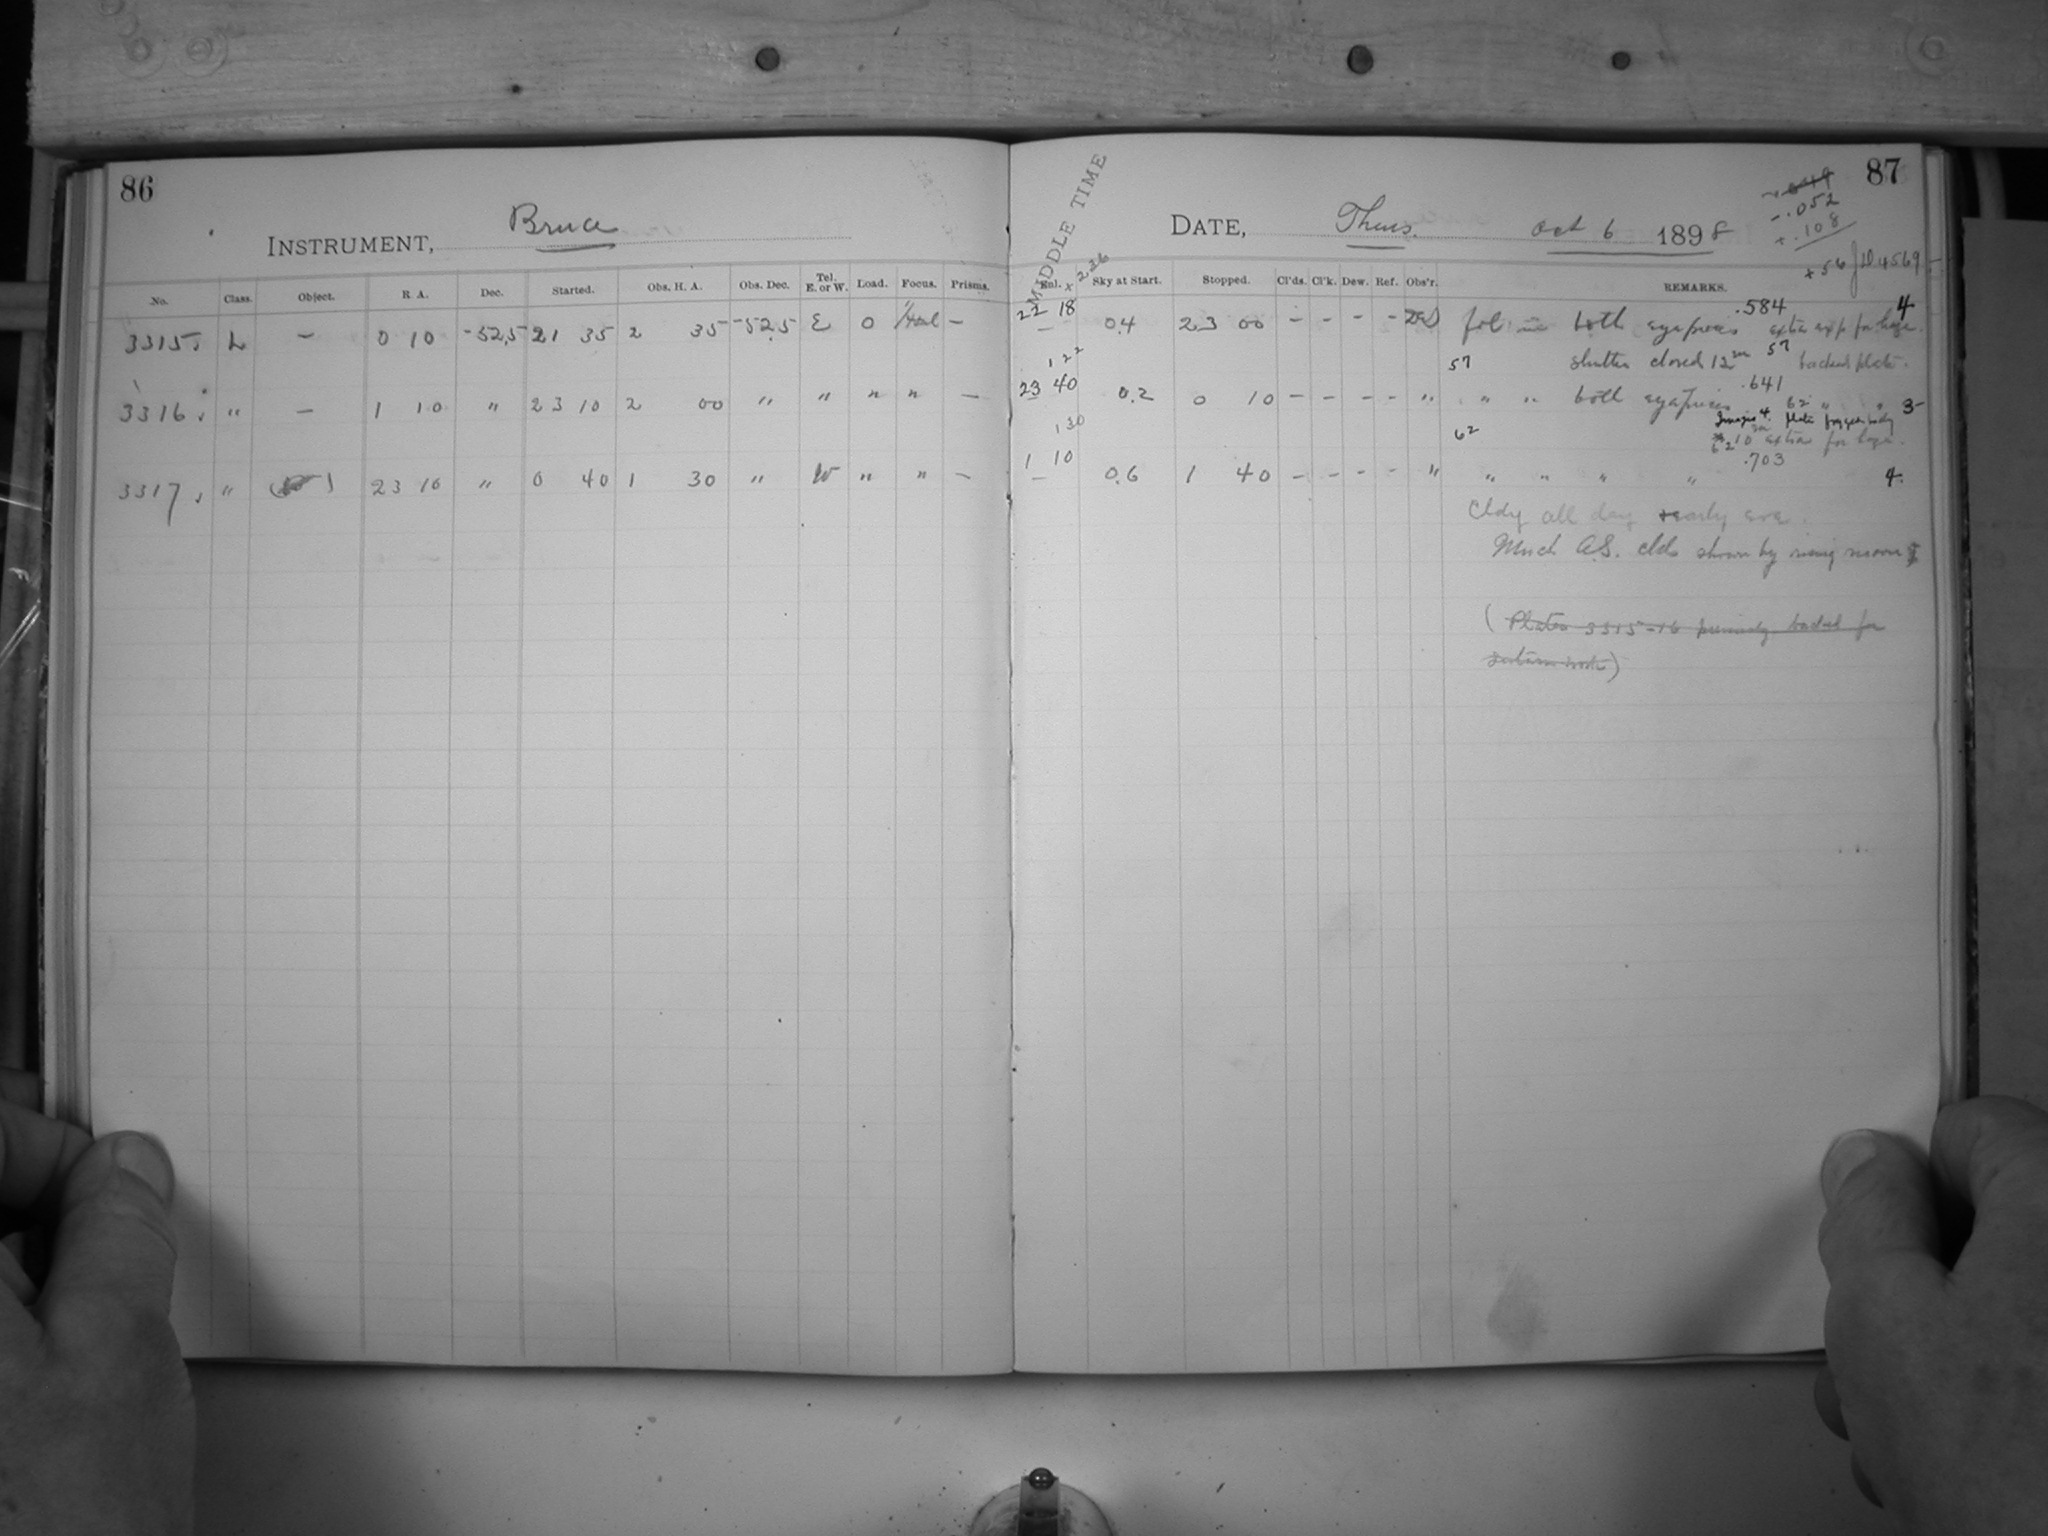 86
87
Bruce
INSTRUMENT,
MIDDLE TIME
DATE, Thurs. Oct 6 1898
-.052
+.108
+56 JD 4569
No. Class. Object. R. A. Dec. Started. Obs. H. A. Obs. Dec. Tel. E. or W. Load. Focus. Prisms. Enl. x 236 Sky at Start. Stopped. Cl'ds. Cl'k. Dew. Ref. Obs'r. REMARKS.
3315. L — 0 10 -52.5 21 35 2 35 -52.5 E 0 — 22 18 — 0.4 23 00 – – – – fol in both eyepieces .584 extra exp for 4
122 57 shutter closed 12m 57 backed plate.
3316. " — 1 10 " 23 10 2 00 " " " " — 23 40 0.2 0 10 – – – – " " " both eyepieces .641 62 " " 3
Images 4. plate
130 62 62 10m extra for
3317. " 23 10 " 0 40 1 30 " W " " — 1 10 — 0.6 1 40 – – – – " " " " " .703 4
Cldy all day & early eve.
Much A.S. clds shown by rising moon
(Plates 3315-16 backed for